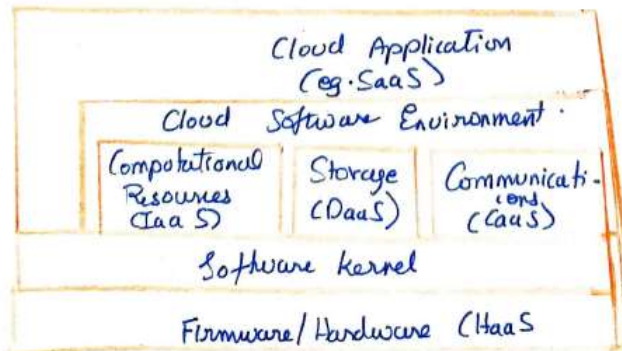 Cloud Application
(eg. SaaS)
Cloud Software Environment.
Computational
Resources
(IaaS)
Storage
(DaaS)
Communicati-
ons
(CaaS)
Software kernel
Firmware/Hardware (HaaS